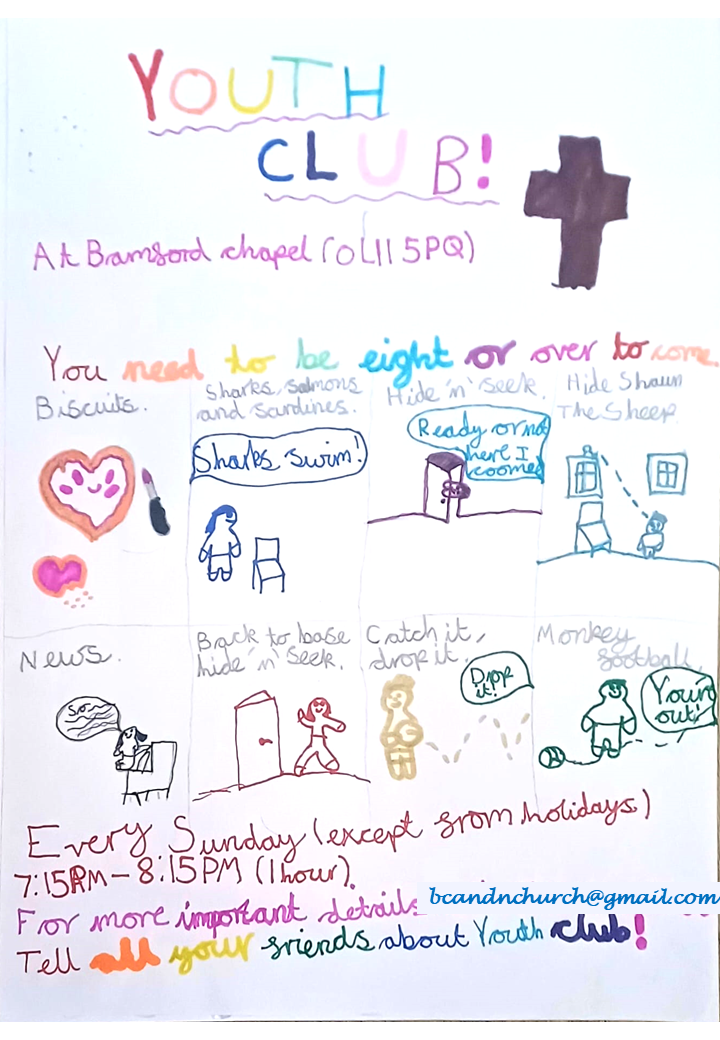 YOUTH
CLUB!
At Bamford chapel (OL11 5PQ)
You need to be eight or over to come.
Biscuits.
Sharks, salmons
and sardines.
Sharks swim!
Hide 'n' seek.
Ready or not
here I
coomee
Hide Shaun
The Sheep.
News.
So
Back to base
hide 'n' seek.
Catch it,
drop it.
Drop
it!
Monkey
football.
Your
out!
Every Sunday (except from holidays)
7:15PM - 8:15PM (1 hour).
For more important details bcandnchurch@gmail.com
Tell all your friends about Youth club!